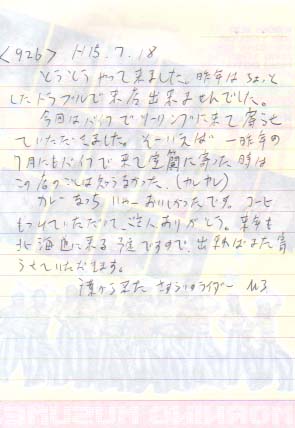 <926> H15.7.18
とうとうやって来ました。昨年はちょっと
したトラブルで来店出来ませんでした。
今回はバイクでツーリングに来て寄らせ
ていただきました。そーいえば一昨年の
7月にもバイクで来て室蘭に寄った時は
この店のことは知らなかった。(カレカレ)
カレーラーメン いやーおいしかったです。コーヒー
もつけていただいて、主人ありがとう。来年も
北海道に来る予定ですので、出来ればまた寄
らせていただきます。
から来た さすらいのライダー
MORNING MUSUME